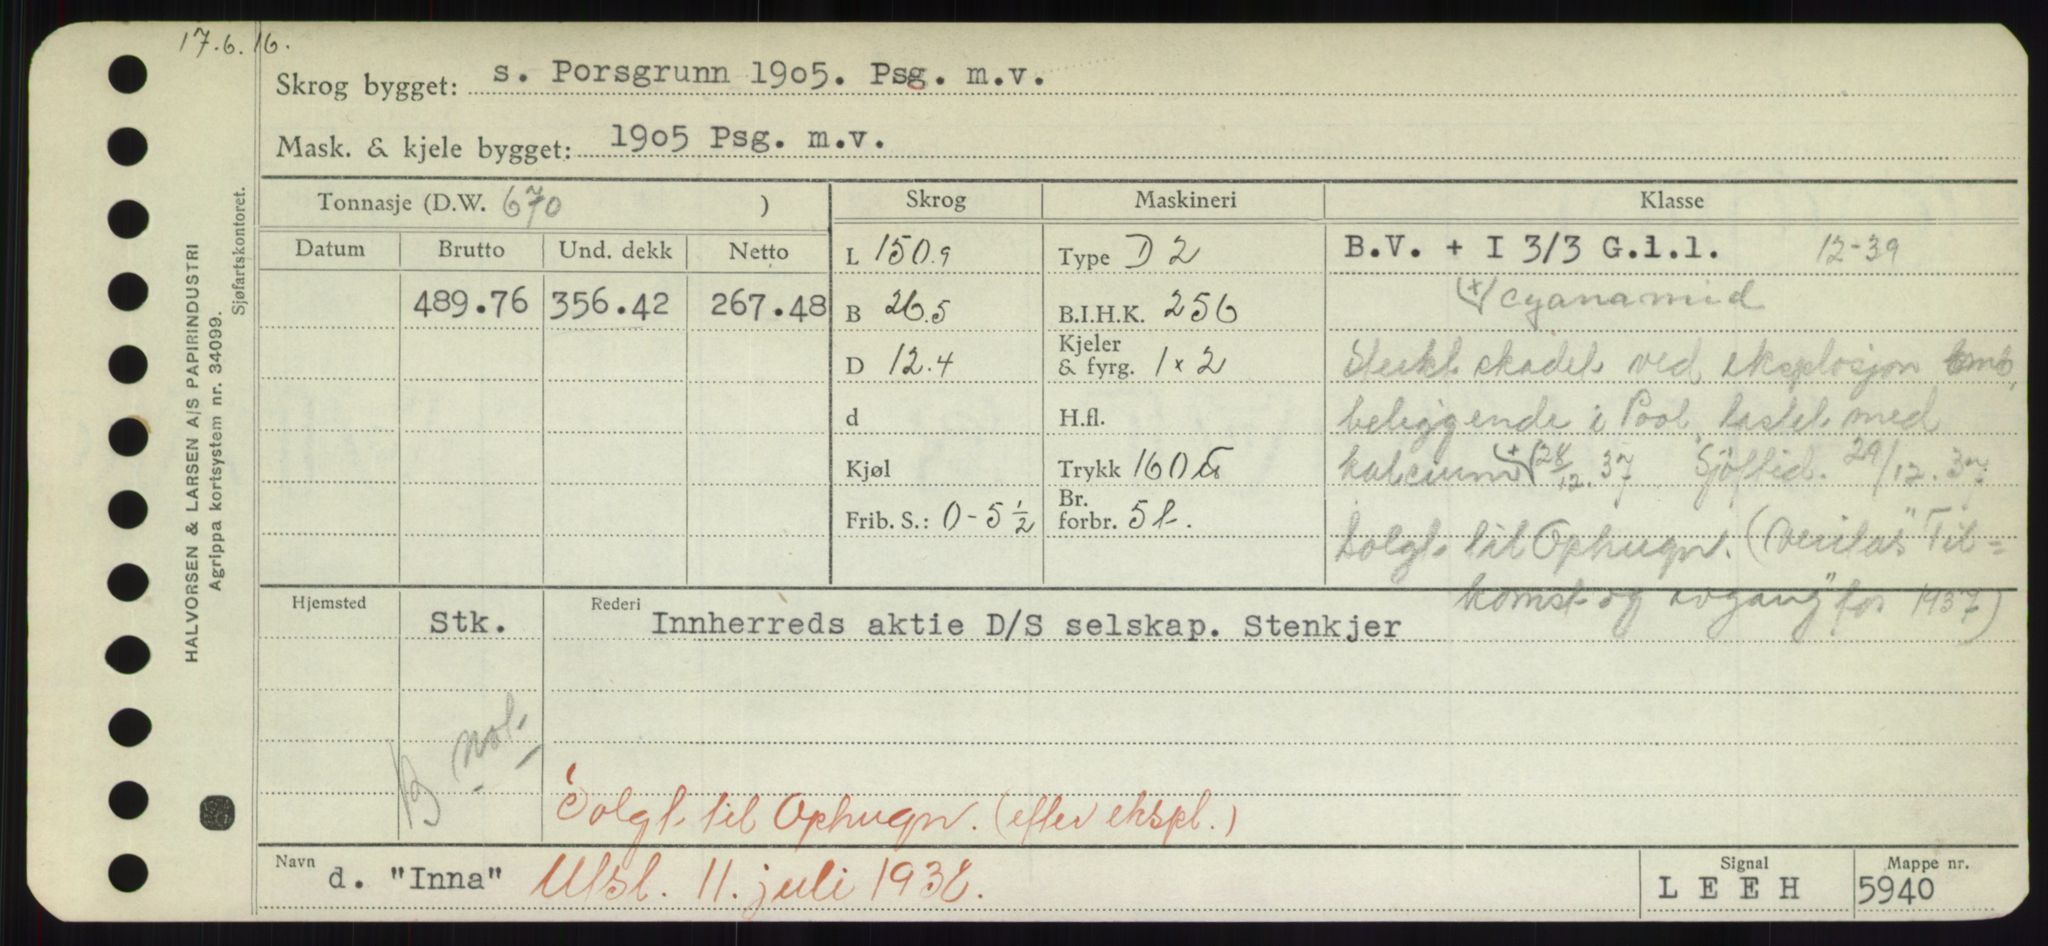 17.6.16.
Skrog bygget: s. Porsgrunn 1905. Psg. m.v.
Mask. & kjele bygget: 1905 Psg. m.v.
Tonnasje (D.W. 670 )
Skrog
Maskineri
Klasse
Datum Brutto Und. dekk Netto
489.76 356.42 267.48
L 150.9
B 26.5
D 12.4
d
Kjøl
Frib. S.: 0-5 1/2
Type D 2
B.I.H.K. 256
Kjeler
& fyrg. 1 x 2
H.fl.
Trykk 160
Br.
forbr. 5 t.
B.V. + I 3/3 G.i.l. 12-39
(+) cyanamid
Sterkt skadet ved eksplosjon omb,
beliggende i Pool, lastet med
kalcium + (28/12.37 Sjøftid. 29/12.37
Solgt til Ophugn. (Veritas "Til-
komst og avgang" for 1937)
Hjemsted
Rederi
Stk. Innherreds aktie D/S selskap. Stenkjer
B not.
Solgt til Ophugn. (efter ekspl.)
Navn d. "Inna" Utsl. 11. juli 1938.
Signal
L E E H
Mappe nr.
5940
HALVORSEN & LARSEN A/S PAPIRINDUSTRI
Agrippa kortsystem nr. 34099.
Sjøfartskontoret.